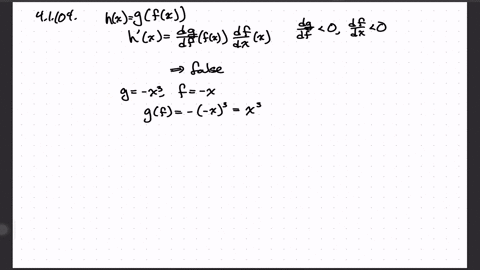 4.1.109. h(x)=g(f(x))
h'(x)= dg/df (f(x)) df/dx (x)    dg/df <0, df/dx <0
⇒ false
g=-x³, f=-x
g(f)= -(-x)³ = x³